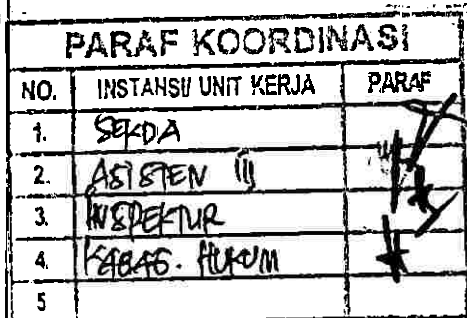 PARAF KOORDINASI
NO. INSTANSI/ UNIT KERJA PARAF
1. SEKDA
2. ASISTEN III
3. INSPEKTUR
4. KABAG. HUKUM
5